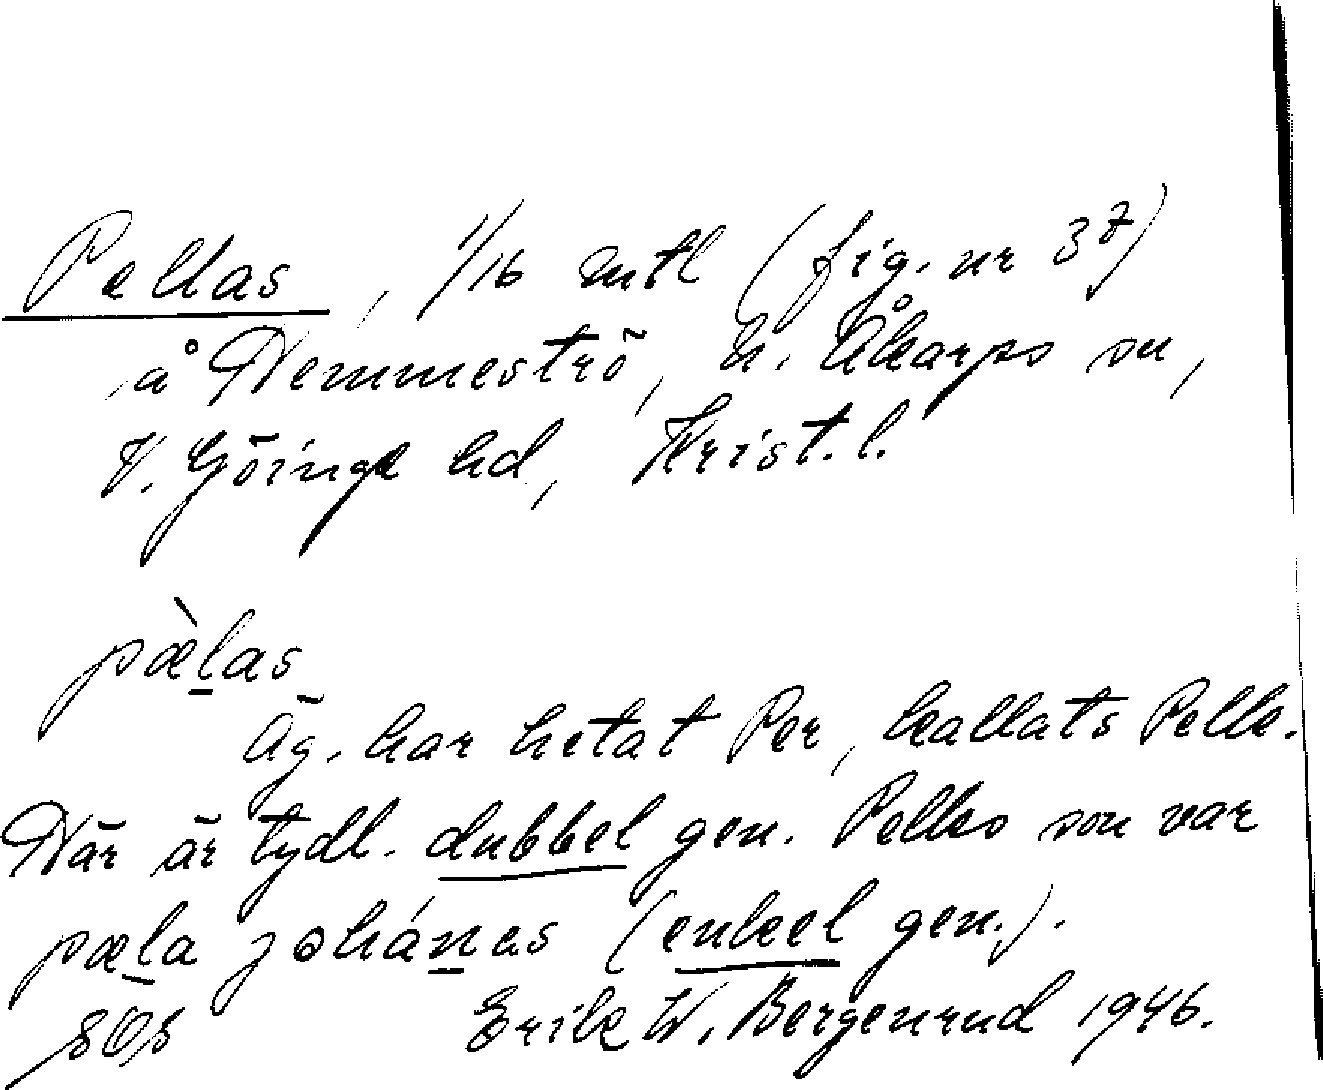 Pellas, 1/16 mtl (fig. nr 3⁷)
å Hemmeströ, N. Åkarps sn,
V. Göinge hd, Krist. l.
pæ̀l̲as
Äg. har hetat Per, kallats Pelle.
Här är tydl. dubbel gen. Pelles son var
pæl̲a johán̲es (enkel gen.).
Erik W. Bergenrud 1946.